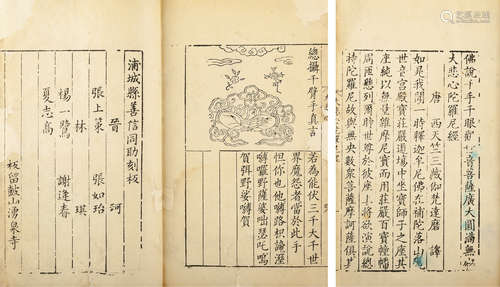 佛說千手千眼觀世音菩薩廣大圓滿無
大悲心陀羅尼經
唐 西天竺三藏伽梵達磨 譯
如是我聞一時釋迦牟尼佛在補陀落山觀
世音宮殿寶莊嚴道場中坐寶師子之座其
座純以無量雜摩尼寶而用莊嚴百寶幢旛
周匝懸列爾時世尊於彼座上將欲演說總
持陀羅尼故與無央數衆菩薩摩訶薩俱其
總攝千臂手真言
若為能伏三千大千世
界魔怨者當於此手
怛你也他嚩路枳諦溼
嚩囉野薩婆咄瑟吒嗚
賀弭野娑嚩賀
浦城縣善信同助刻板
張上策 張如珆
林 琪
楊 謝逢春
夏志高
板留鼓山湧泉寺